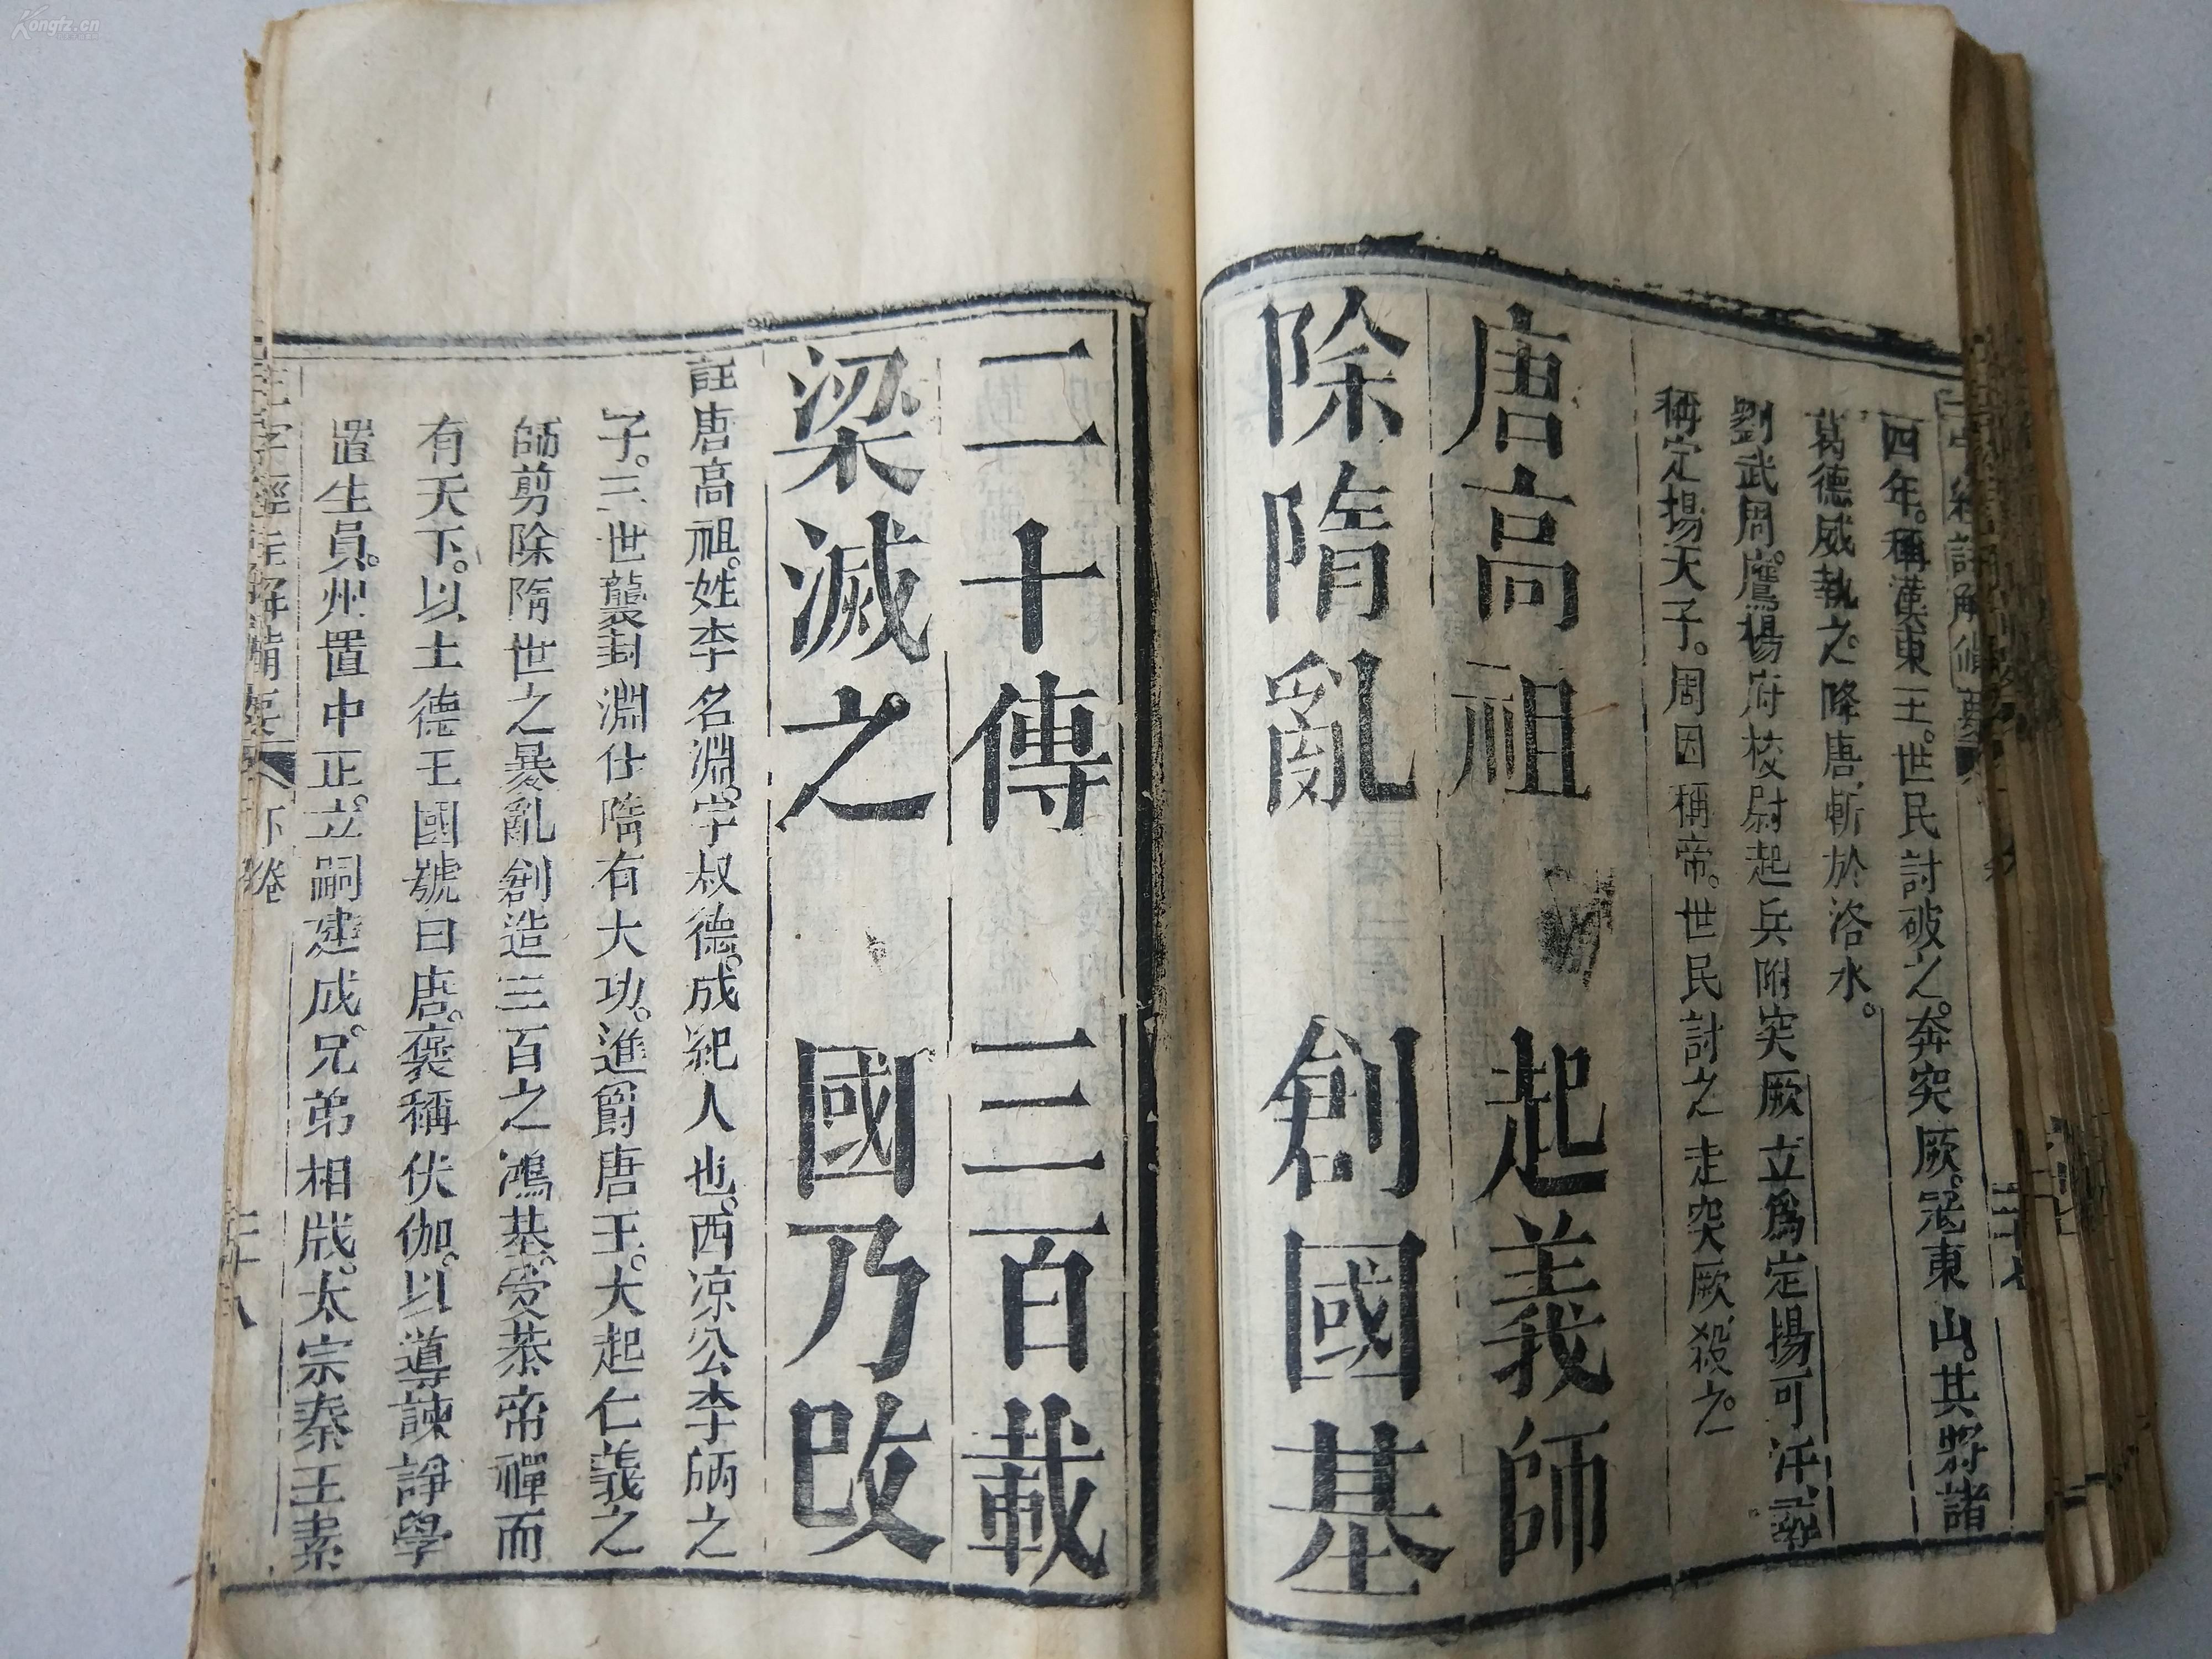 四年。稱漢東王。世民討破之。奔突厥。冦東山。其將諸
葛德威執之。降唐斬於洛水。
劉武周。鷹揚府校尉起兵附突厥立爲定揚可汗。
稱定揚天子。周因稱帝。世民討之走突厥殺之。
唐高祖 起義師
除隋亂 創國基
二十傳 三百載
梁滅之 國乃改
註唐高祖。姓李名淵。字叔德。成紀人也。西凉公李昞之
子。三世襲封淵仕隋有大功。進爵唐王。大起仁義之
師剪除隋世之暴亂創造三百之鴻基。受恭帝禪而
有天下。以土德王國號曰唐。褒稱伏伽。以導諫諍學
置生員。州置中正。立嗣建成。兄弟相戕。太宗秦王素
三字經註解備要 下卷 二十八
Kongfz.cn